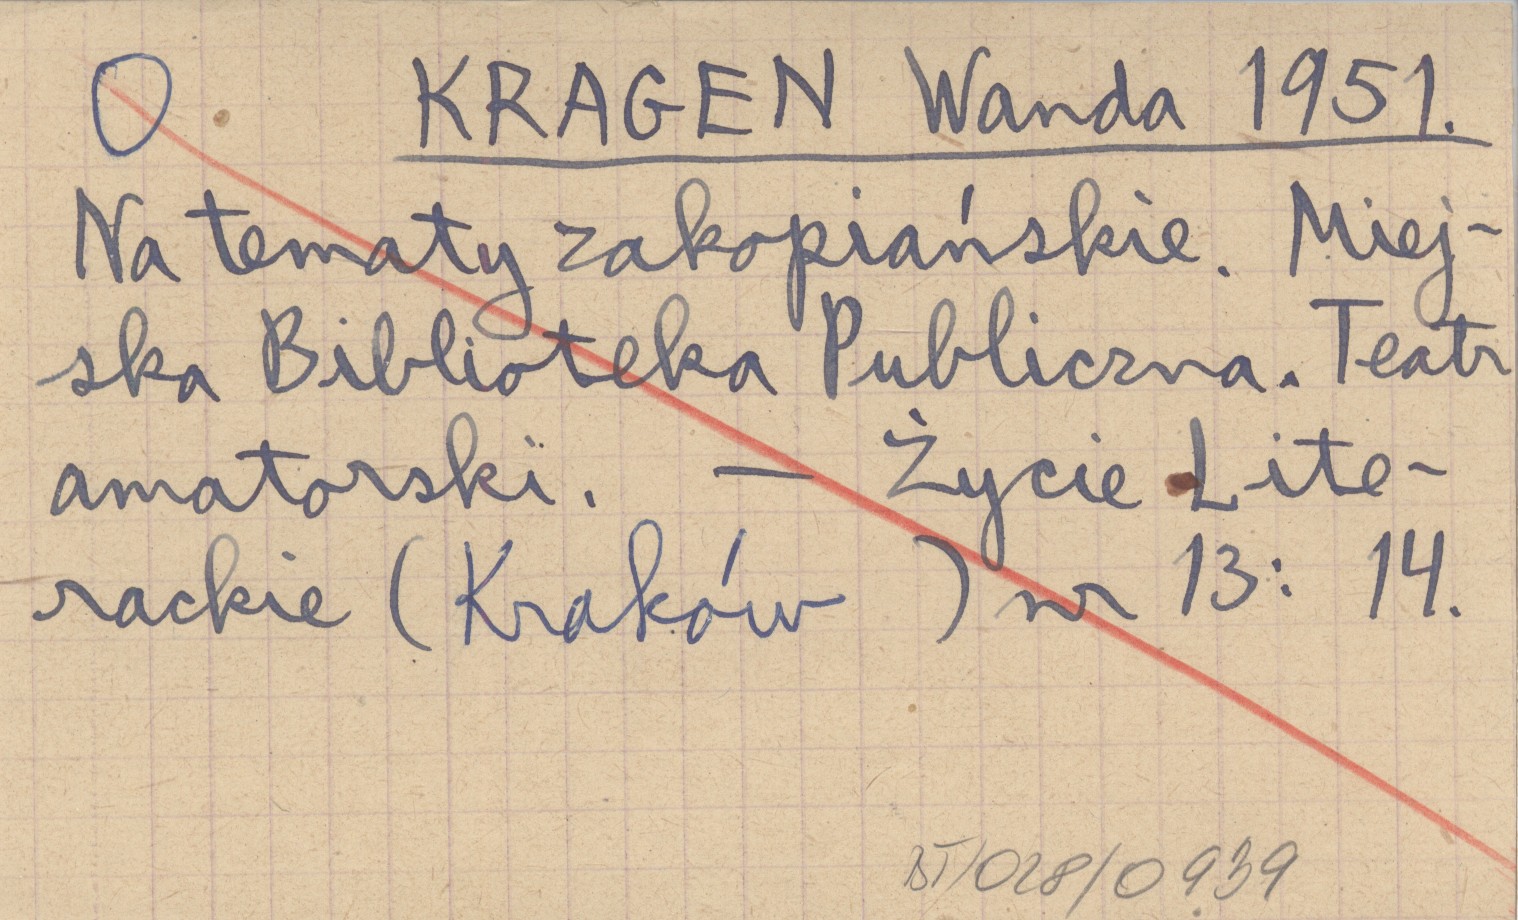 O KRAGEN Wanda 1951.
Na tematy zakopiańskie. Miej-
ska Biblioteka Publiczna. Teatr
amatorski. — Życie Lite-
rackie (Kraków) nr 13: 14.
BT/028/0939